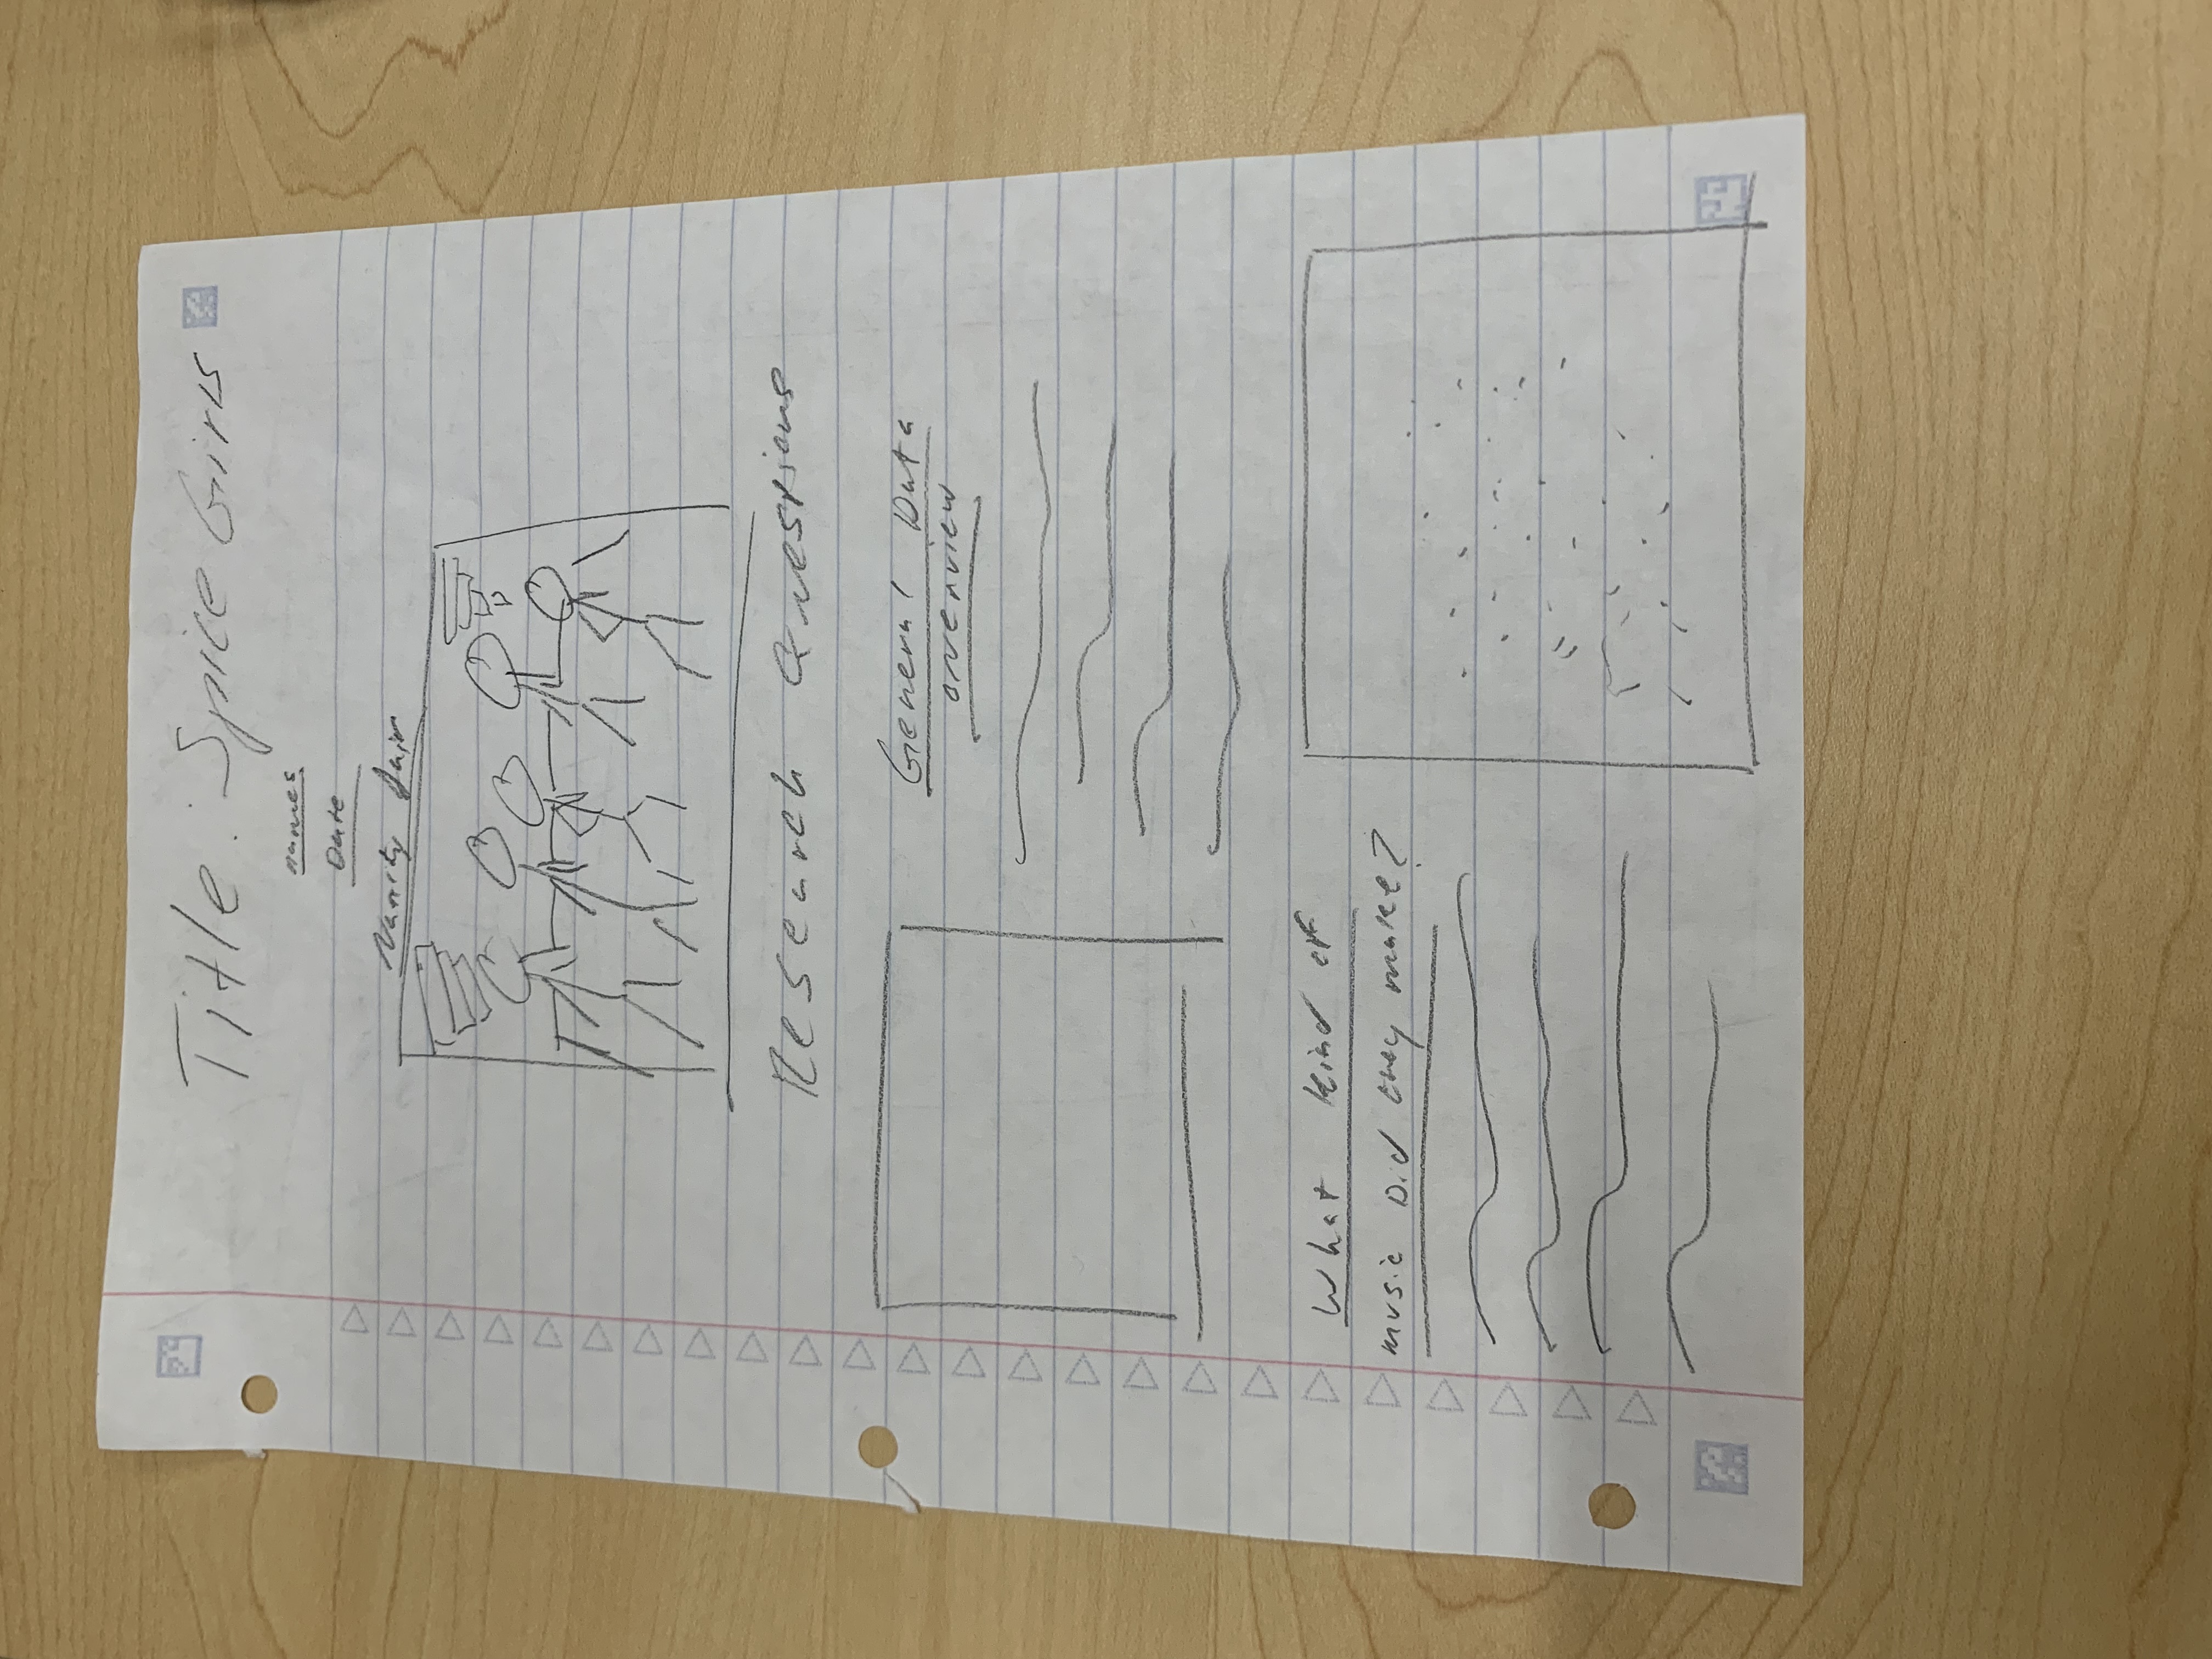 Title: Spice Girls
names
Date
Vanity fair
Research Questions
General Data
overview
What kind of
music Did they make?